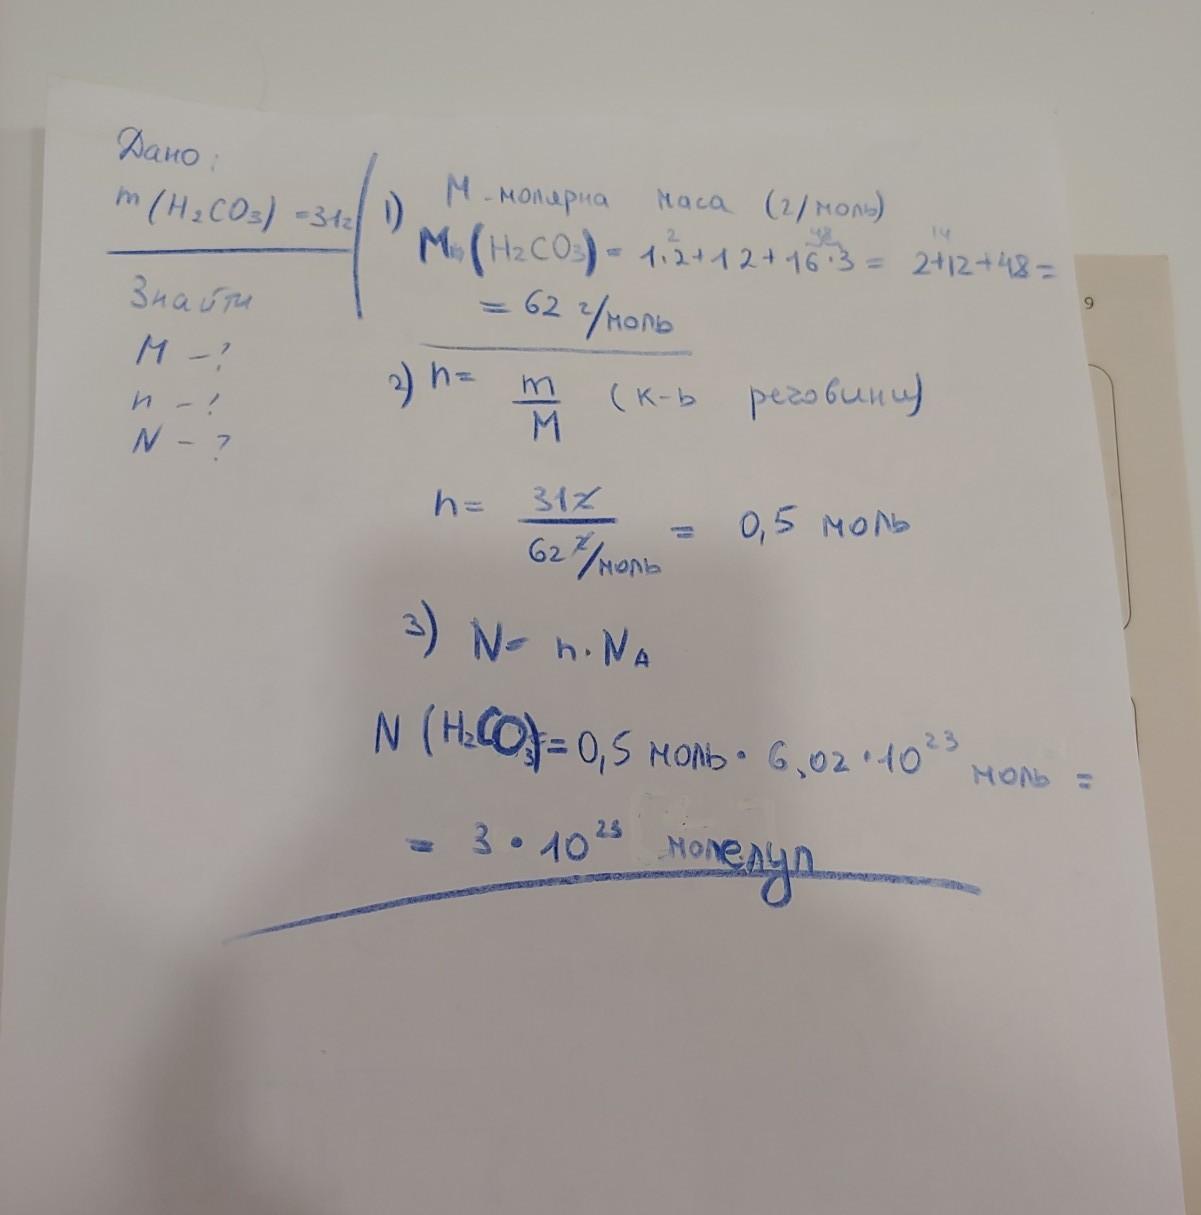 Дано:
m (H₂CO₃) = 31г
Знайти
M - ?
n - ?
N - ?
1) M - молярна маса (г/моль)
2 48 14
M (H₂CO₃) = 1·2+12+16·3 = 2+12+48 =
= 62 г/моль
2) n = m/M (к-ь речовини)
n = 31г/62 г/моль = 0,5 моль
3) N = n · N_A
N (H₂CO₃) = 0,5 моль · 6,02 · 10²³ моль =
= 3 · 10²³ молекул
9